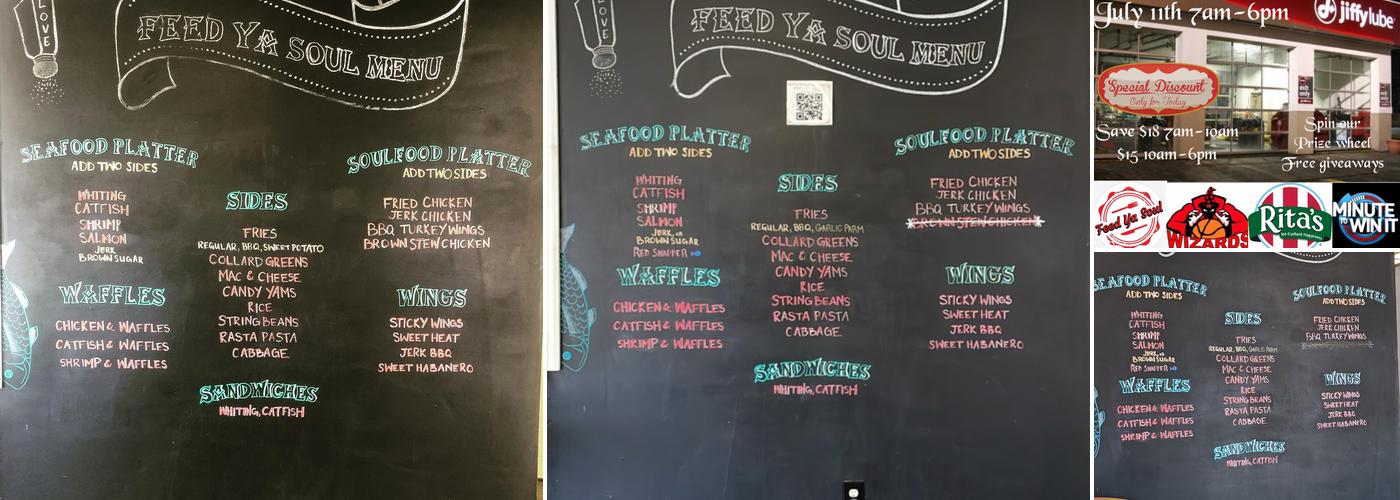 LOVE
FEED YA SOUL MENU
SEAFOOD PLATTER
ADD TWO SIDES
WHITING
CATFISH
SHRIMP
SALMON
JERK
BROWN SUGAR
WAFFLES
CHICKEN & WAFFLES
CATFISH & WAFFLES
SHRIMP & WAFFLES
SIDES
FRIES
REGULAR, BBQ, SWEET POTATO
COLLARD GREENS
MAC & CHEESE
CANDY YAMS
RICE
STRING BEANS
RASTA PASTA
CABBAGE
SANDWICHES
WHITING, CATFISH
SOULFOOD PLATTER
ADD TWO SIDES
FRIED CHICKEN
JERK CHICKEN
BBQ TURKEY WINGS
BROWN STEW CHICKEN
WINGS
STICKY WINGS
SWEET HEAT
JERK BBQ
SWEET HABANERO
FEED YA SOUL MENU
SEAFOOD PLATTER
ADD TWO SIDES
WHITING
CATFISH
SHRIMP
SALMON
JERK, OR
BROWN SUGAR
RED SNAPPER
WAFFLES
CHICKEN & WAFFLES
CATFISH & WAFFLES
SHRIMP & WAFFLES
SIDES
FRIES
REGULAR, BBQ, GARLIC PARM
COLLARD GREENS
MAC & CHEESE
CANDY YAMS
RICE
STRING BEANS
RASTA PASTA
CABBAGE
SANDWICHES
WHITING, CATFISH
SOULFOOD PLATTER
ADD TWO SIDES
FRIED CHICKEN
JERK CHICKEN
BBQ TURKEY WINGS
BROWN STEW CHICKEN
WINGS
STICKY WINGS
SWEET HEAT
JERK BBQ
SWEET HABANERO
July 11th 7am-6pm
jiffylube
Special Discount
Only for Today
exit only
Save $18 7am-10am
$15 10am-6pm
Spin our
Prize wheel
Free giveaways
Feed Ya Soul
WIZARDS
Rita's
Ice Custard Happiness
MINUTE TO WIN IT
SEAFOOD PLATTER
ADD TWO SIDES
WHITING
CATFISH
SHRIMP
SALMON
JERK, OR
BROWN SUGAR
RED SNAPPER
WAFFLES
CHICKEN & WAFFLES
CATFISH & WAFFLES
SHRIMP & WAFFLES
SIDES
FRIES
REGULAR, BBQ, GARLIC PARM
COLLARD GREENS
MAC & CHEESE
CANDY YAMS
RICE
STRING BEANS
RASTA PASTA
CABBAGE
SANDWICHES
WHITING, CATFISH
SOULFOOD PLATTER
ADD TWO SIDES
FRIED CHICKEN
JERK CHICKEN
BBQ TURKEY WINGS
WINGS
STICKY WINGS
SWEET HEAT
JERK BBQ
SWEET HABANERO